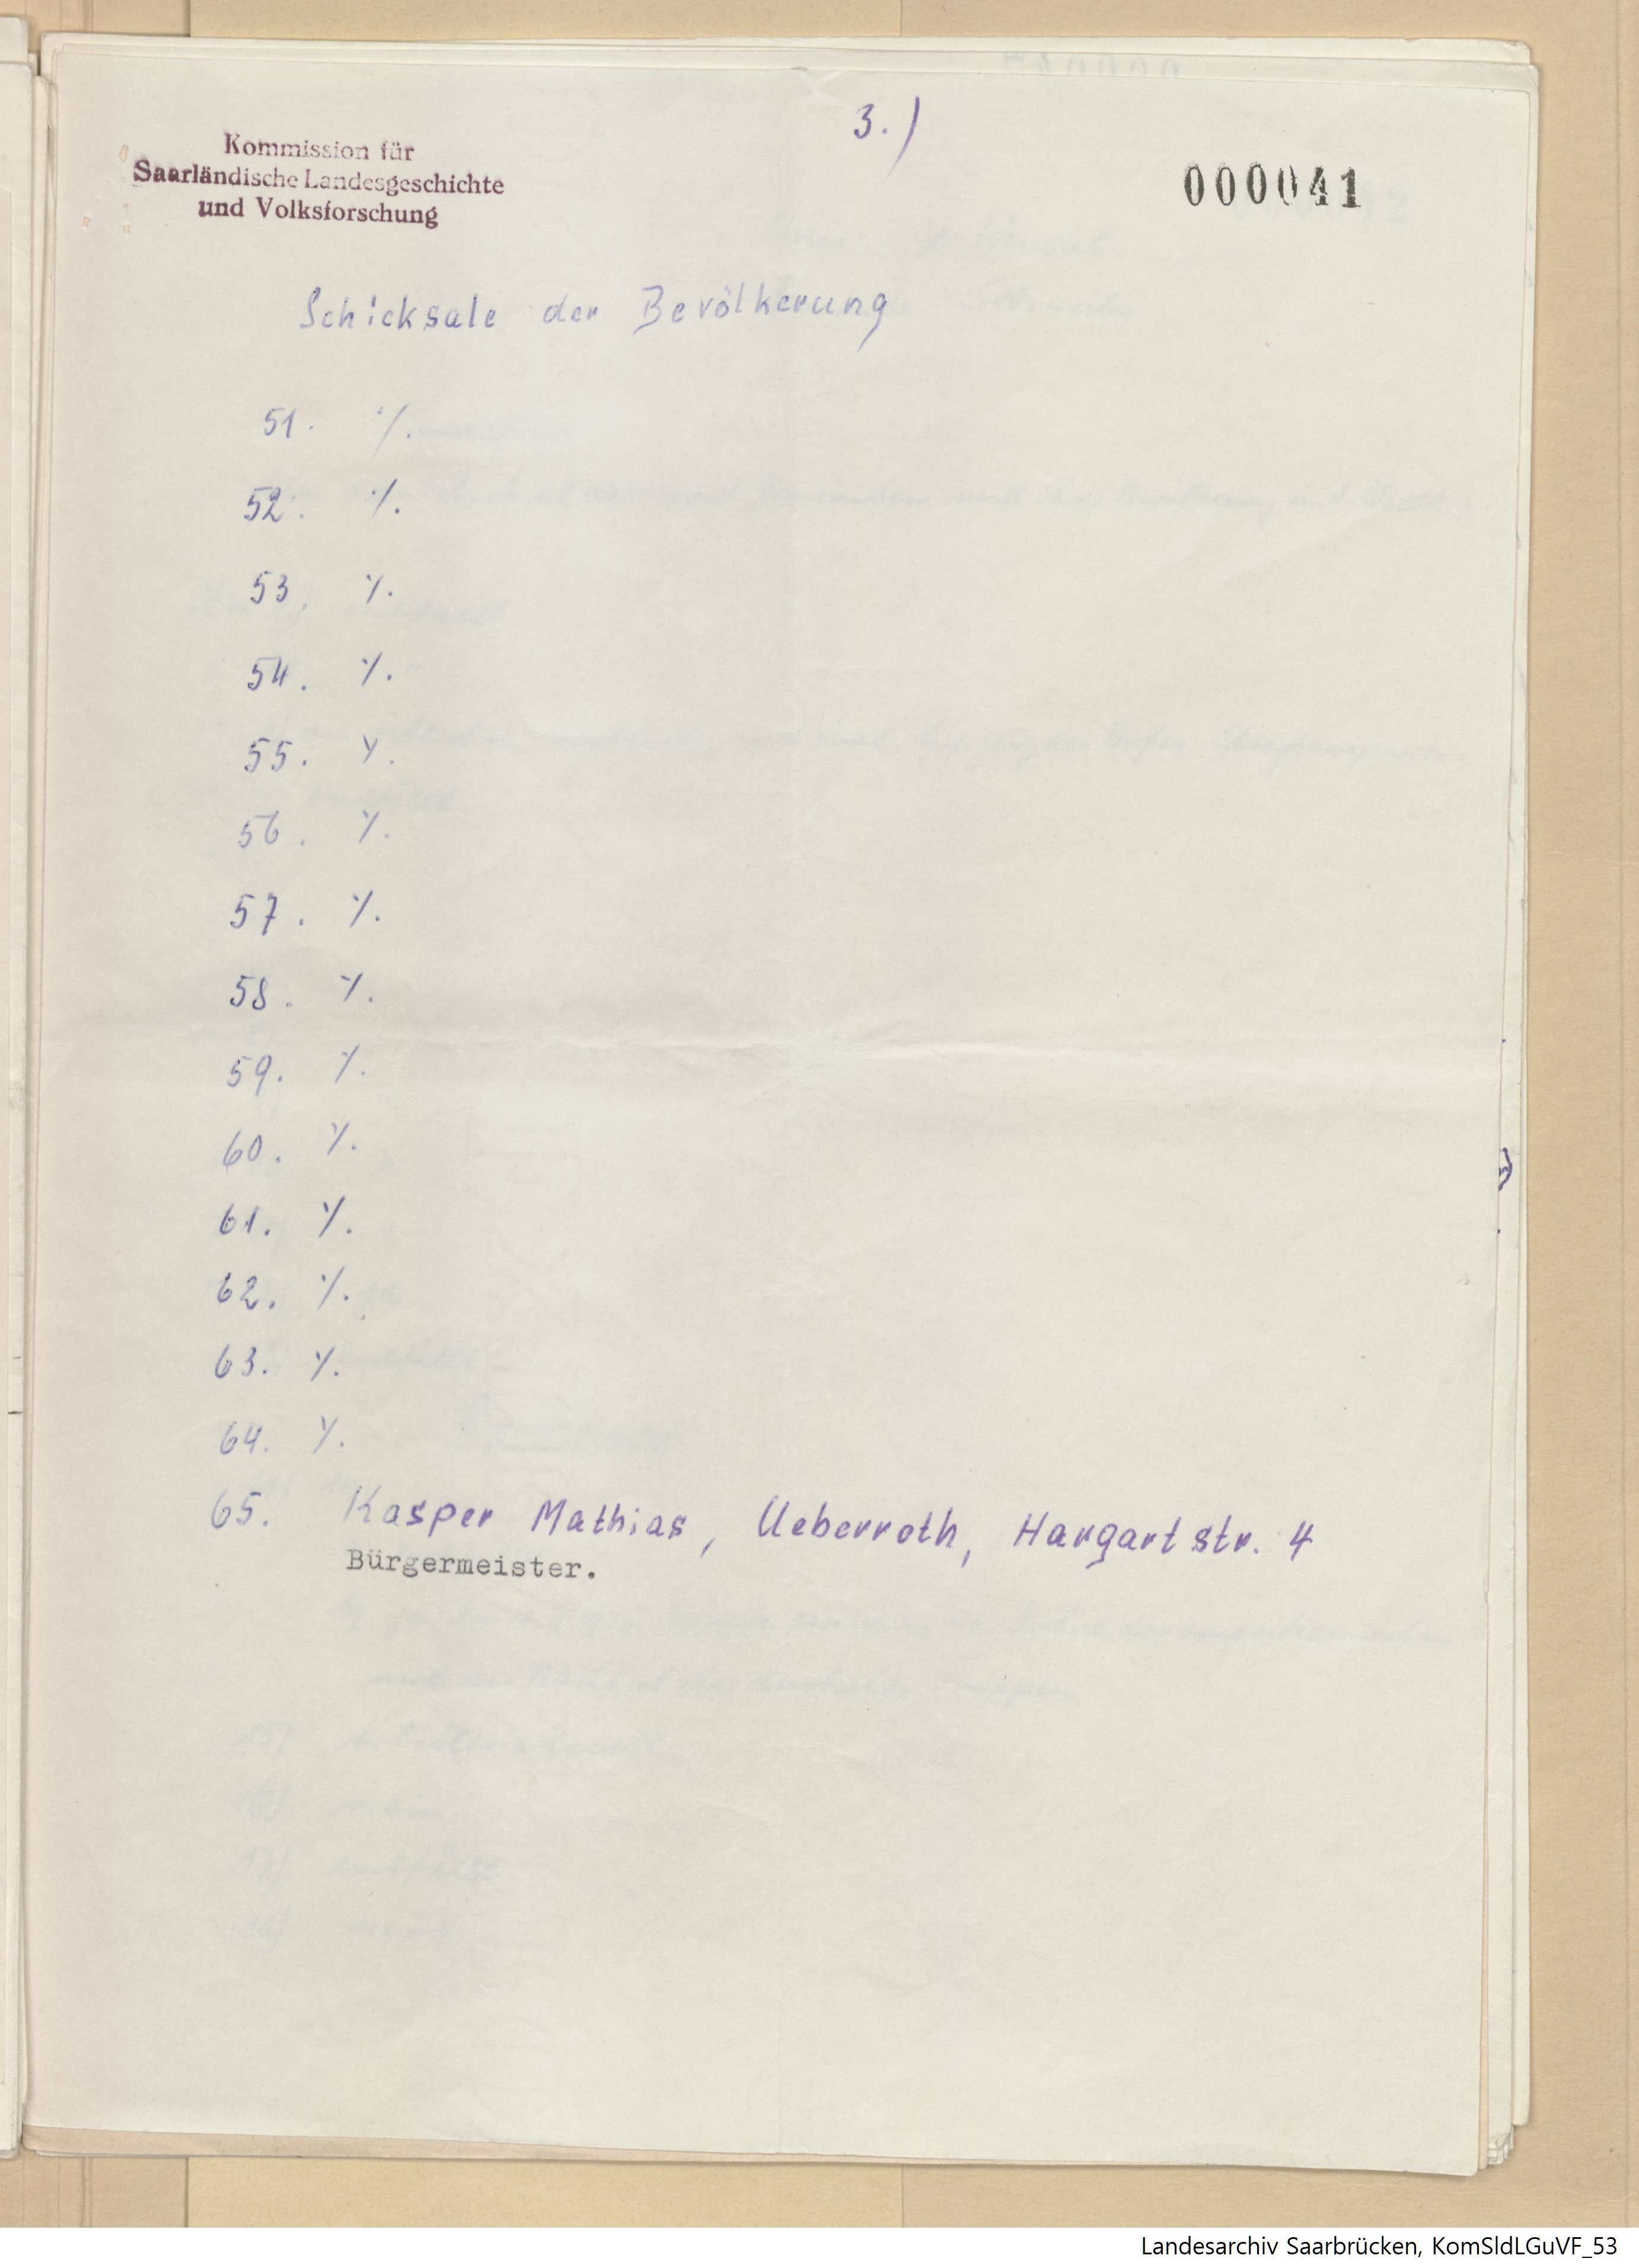 3.)
Kommission für
Saarländische Landesgeschichte
und Volksforschung
000041
Schicksale der Bevölkerung
51. ·/.
52. ·/.
53. ·/.
54. ·/.
55. ·/.
56. ·/.
57. ·/.
58. ·/.
59. ·/.
60. ·/.
61. ·/.
62. ·/.
63. ·/.
64. ·/.
65. Kasper Mathias, Ueberroth, Hargartstr. 4
Bürgermeister.
Landesarchiv Saarbrücken, KomSldLGuVF_53